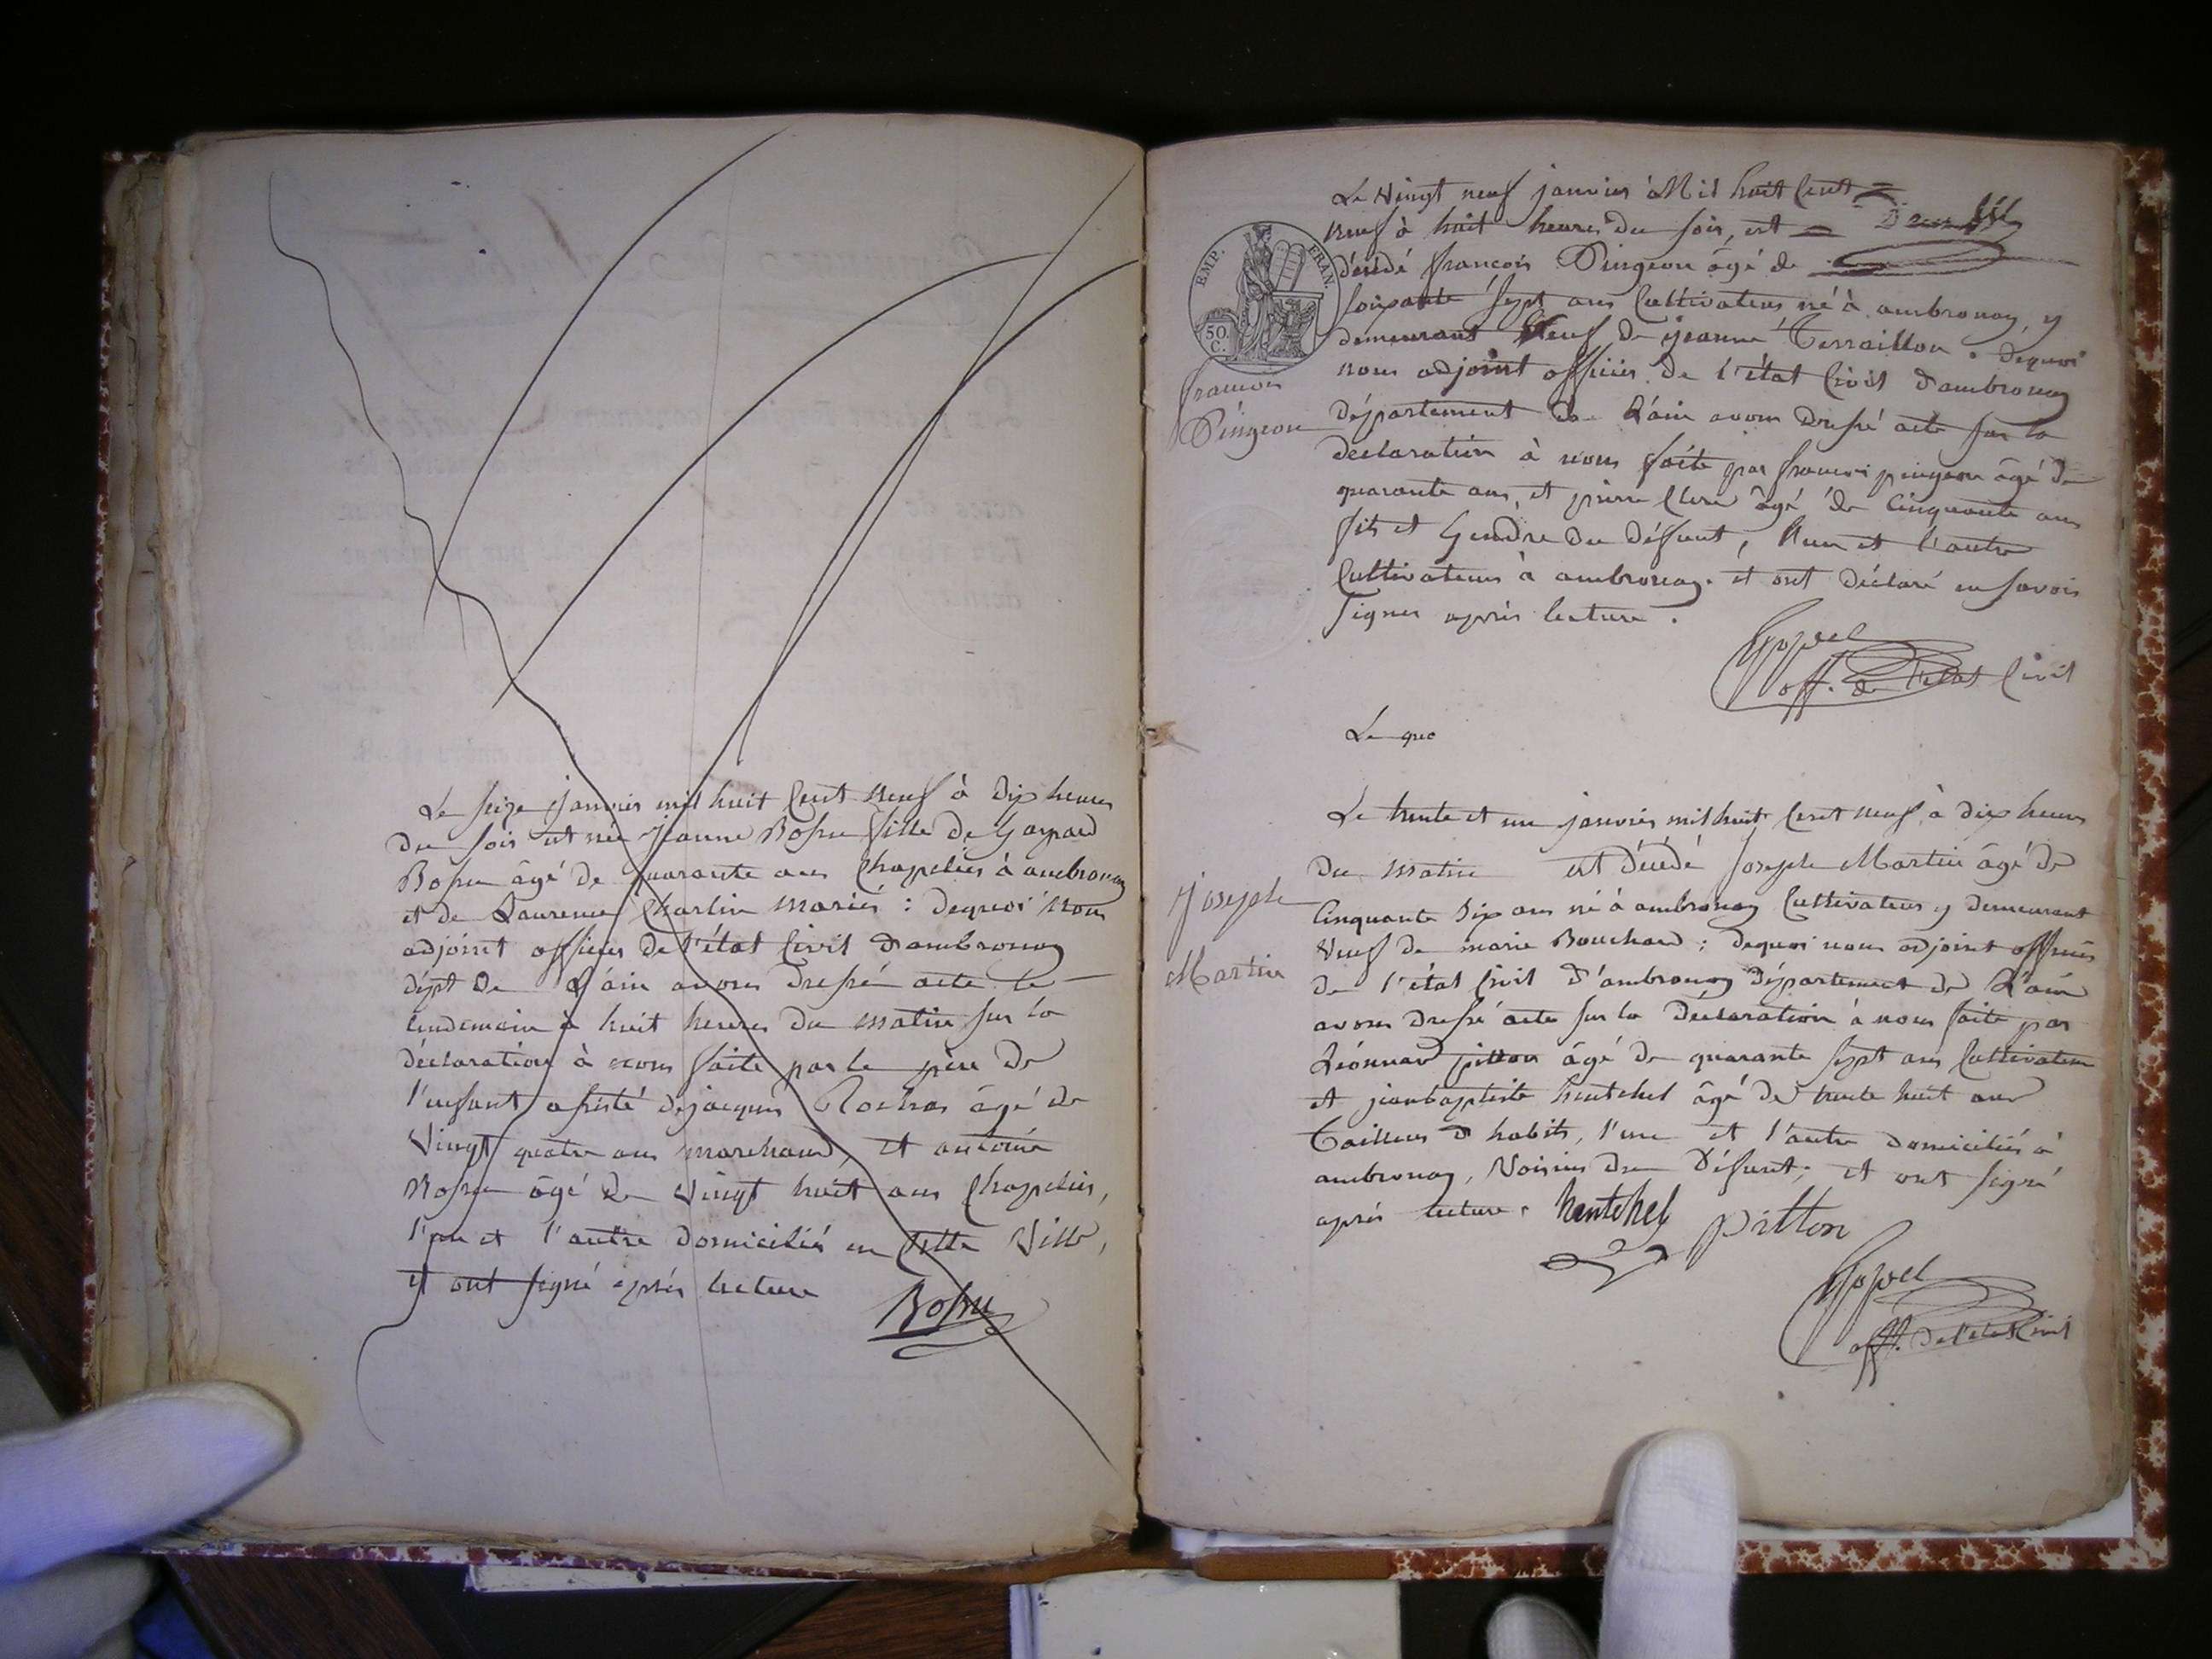 Le seize janvier mil huit cent neuf à dix heures
du soir est née jeanne Bossu fille de Gaspard
Bossu âgé de quarante ans Chapelier à ambronay
et de Laurence Charlin mariés : dequoi nous
adjoint officier de l'état Civil d'ambronay
dépt de L'ain avons dressé acte le
lendemain à huit heures du matin sur la
déclaration à nous faite par le père de
l'enfant assisté de jacques Rochas âgé de
Vingt quatre ans marchand, et antoine
Bossu âgé de vingt huit ans Chapelier,
l'un et l'autre domiciliés en cette Ville,
et ont signé après lecture
Bossu
Le Vingt neuf janvier Mil huit Cent
neuf à huit heures du soir, est
décédé françois Pingeon âgé de
soixante sept ans Cultivateur, né à ambronay, y
demeurant Veuf de jeanne Terraillon . dequoi
nous adjoint officier de l'état Civil d'ambronay
département de L'ain avons dressé acte sur la
declaration à nous faite par francois pingeon âgé de
quarante ans, et pierre Clere âgé de Cinquante ans
fils et Gendre du défunt, l'un et l'autre
Cultivateurs à ambronay. et ont déclaré ne savoir
signer après lecture.
EMP. FRAN.
50 C.
francois
Pingeon
off. de l'etat Civil
Le que
Le trente et un janvier mil huit Cent neuf à dix heures
du matin est décédé Joseph Martin âgé de
Cinquante dix ans né à ambronay Cultivateur y demeurant
Veuf de marie Bouchard : dequoi nous adjoint officier
de l'état Civil d'ambronay département de L'ain
avons dressé acte sur la Déclaration à nous faite par
Léonnard pitton âgé de quarante sept ans Cultivateur
et jeanbaptiste hentchel âgé de trente huit ans
Tailleur d habits, l'un et l'autre domiciliés à
ambronay, Voisins du Défunt, et ont signé
après lecture.
Joseph
Martin
hentchel
pitton
off. de l'etat Civil